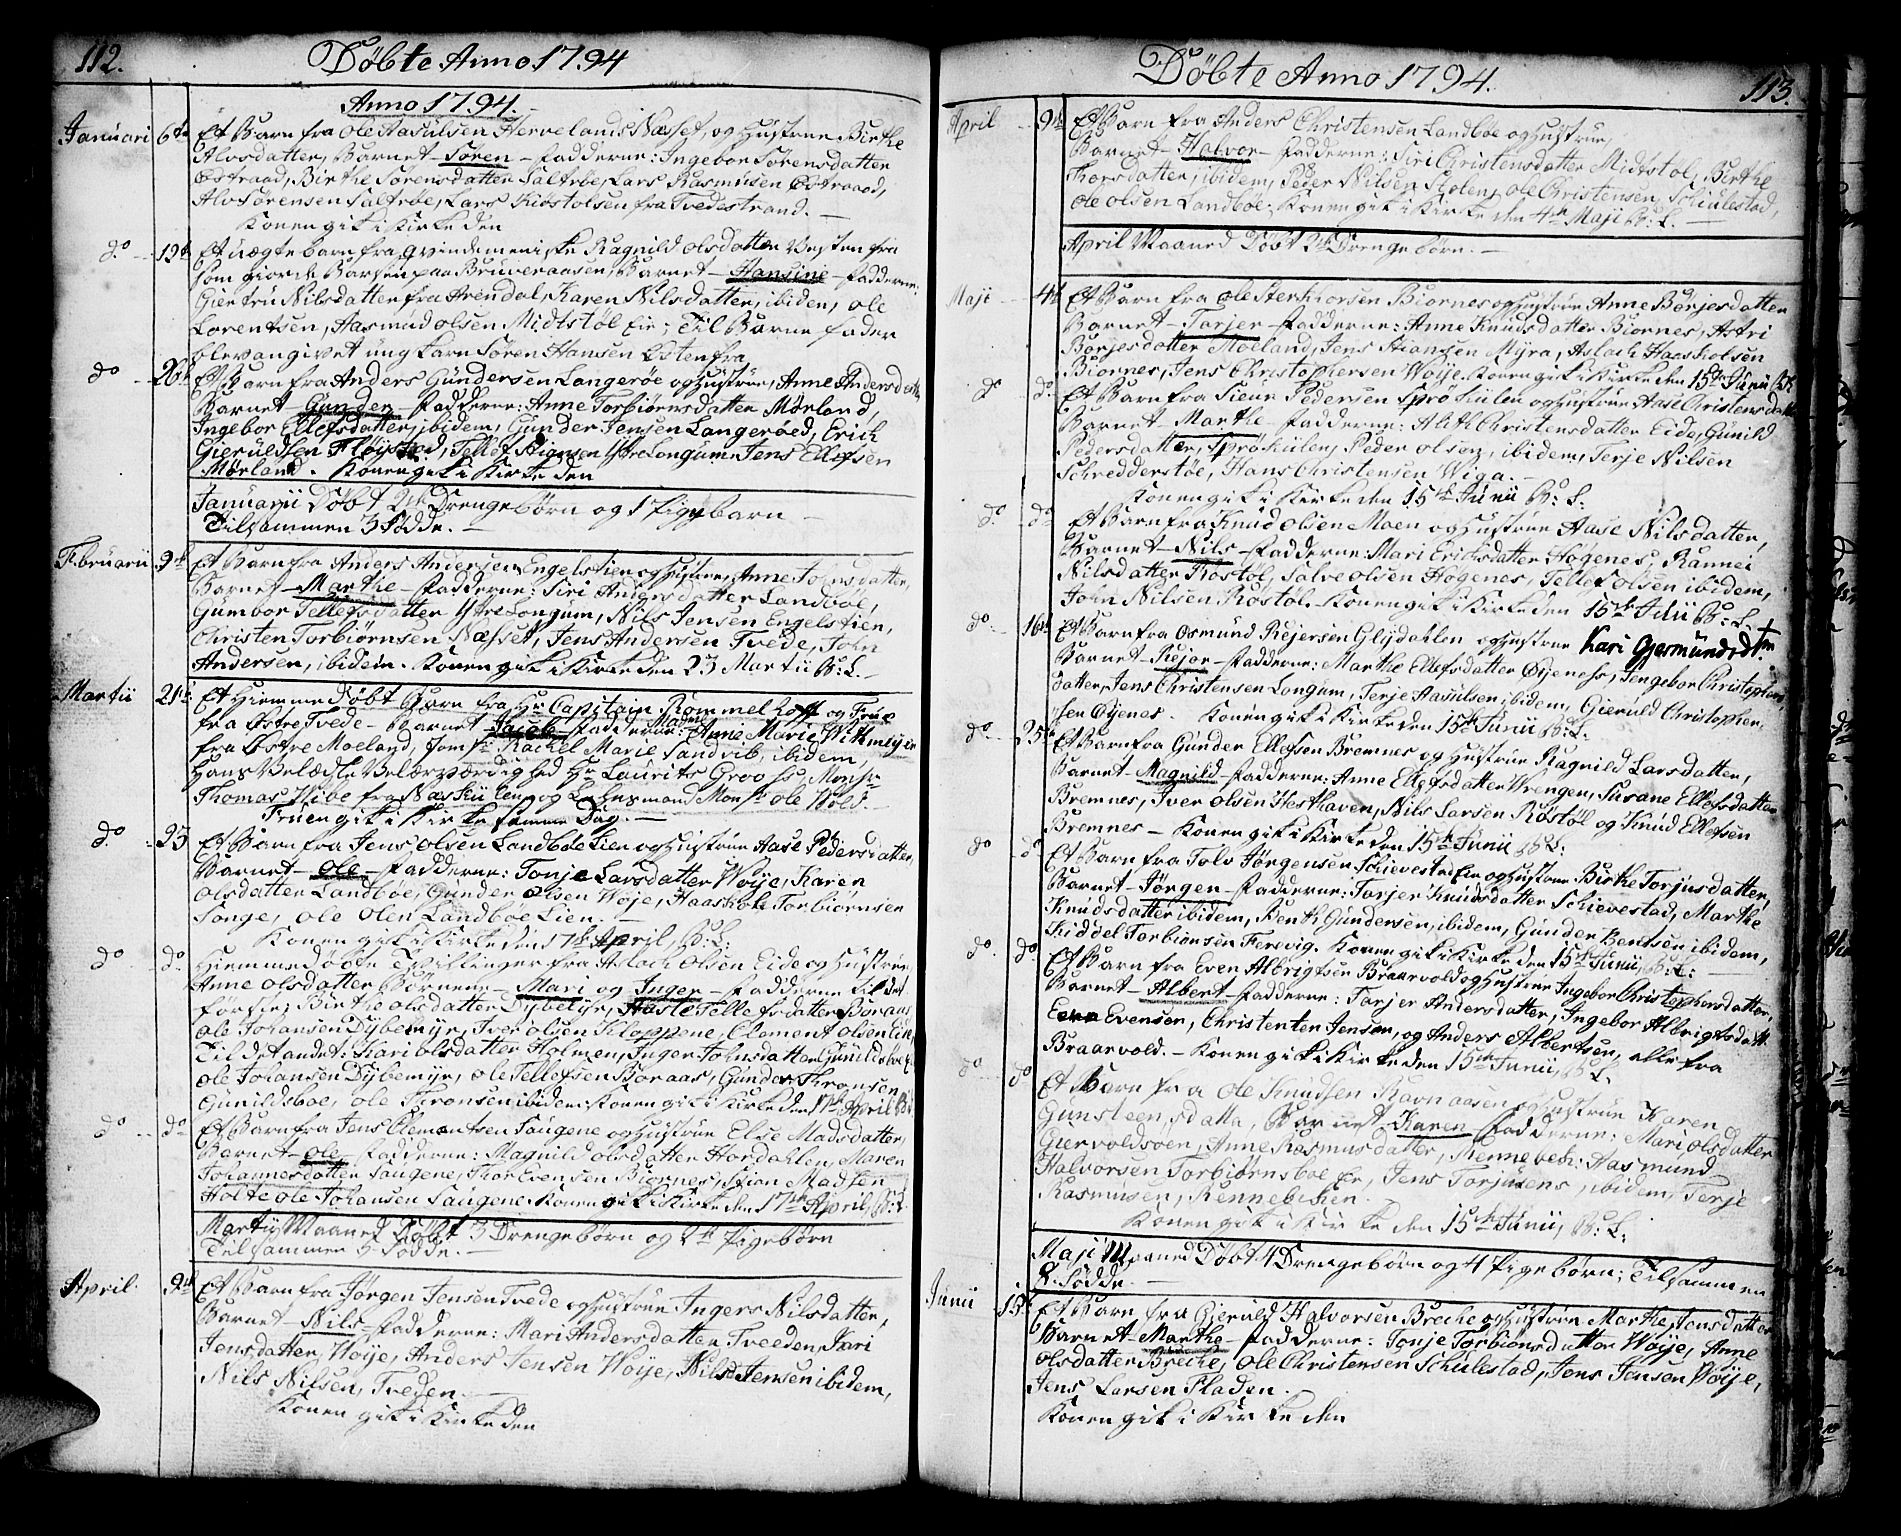 112.
Döbte Anno 1794
Anno 1794.
Januari 6te Et Barn fra Ole Aasulsen Hervelands Næsset, og Hustrue Birthe
Alvsdatter, Barnet - Sören - Fadderne: Ingebor Sörensdatter
Östraad, Birthe Sörensdatter Saltröe, Lars Rasmusen Östraad,
Alv Sörensen Saltröe, Lars Kiöstolsen fra Tvedestrand. -
Konen gik i Kirke den
do 19de Et uægte barn fra qvindemeniske Ragnild Olsdatter Vesten fra
som giorde Barsel paa Bruveraasen, Barnet - Hansine - Fadderne:
Giertru Nilsdatter fra Arendal, Karen Nilsdatter, ibiden, Ole
Lorentsen, Aasmud Olsen Midtstöl Eie; Til Barne fader
blev angivet ung karn Sören Hansen Östen fra
do 26de Et Barn fra Anders Gundersen Langeröe og Hustrue, Anne Andersdatter
Barnet - Gunder - Fadderne: Anne Torbiörnsdatter Mörland,
Ingebor Ellefsdatter, ibidem, Gunder Jensen Langeröed, Erich
Gieruldsen Flöistad, Tellef Stiansen Yttre Longum, Jens Ellefsen
Mörland. Konen gik i Kirke den
Januarii Döbt 2de Drengebörn og 1 Pigebarn -
Tilsammen 3 Födde. -
Februarii 9de Et Barn fra Anders Andersen Engelstien og Hustrue, Anne Johnsdatter,
Barnet - Marthe - Fadderne: Siri Andersdatter Landböe,
Gumbor Tellefsdatter Yttre Longum, Nils Jensen Engelstien,
Christen Torbiörnsen Næsset, Jens Andersen Tvede, John
Andersen, ibidem. Konen gik i Kirke den 23 Martii B: L. -
Martii 21de Et Hiemme Döbt Barn fra Hr Capitain Rommelhoff og Frue
fra Östre Tvede - Barnet Jacob - Fadderne: Madme Anne Marie Withmeyer
fra Östre Moeland, Jomfr Rachel Marie Sandvib, ibidem,
Hans Velædle Velærværdighed Hr Laurits Grooss, Monsr
Thomas Vibe fra Næskilen og Lehnsmand Monsr Ole Bold. -
Fruen gik i Kirke samme Dag. -
do 23 Et Barn fra Jens Olsen Landböe Lien og Hustrue Aase Pedersdatter,
Barnet - Ole - Fadderne: Tonje Larsdatter Woije, Karen
Olsdatter Landböe, Gunder Olsen Woje, Haaskol Torbiörnsen
Songe, Ole Olen Landböe Lien. -
Konen gik i Kirke den 17de April, B: L:
do do Hiemme Döbte Tvillinger fra Aslach Olsen Eide og Hustrue
Anne Olsdatter Börnene - Mari og Inger - Fadderne til det
förste: Birthe Olsdatter Dybemyr, Aaste Tellefsdatter Boraas
Ole Johansen Dybemyr, Iver Olsen Kloppene, Clement Olsen Eide,
Til det andet: Kari Olsdatter Holmen, Inger Johnsdatter Gunildsboe,
Ole Johansen Dybemyr, Ole Tellefsen Boraas, Gunder Thronsen
Gunildsboe, Ole Thronsen ibidem. Konen gik i Kirke den 17de April B: L
do do Et Barn fra Jens Clementsen Saugene og Hustrue Else Madsdatter,
Barnet - Ole - Fadderne: Magnild Olsdatter Hordahlen, Maren
Johannesdatter Saugene, Thor Evensen Biornes, Stian Madsen
Holte Ole Johansen Saugene. Konen gik i Kirke den 17de April, B: L
Martij Maaned Döbt 3 Drengebörn og 2de Pigebörn
Tilsammen 5 Födde. -
April 9de Et Barn fra Jörgen Jensen Tvede og Hustrue Ingers Nilsdatter,
Barnet - Nils - Fadderne: Mari Andersdatter Tveeden, Kari
Jensdatter, Woije, Anders Jensen Woije, Nils Jensen ibidem,
Nils Nilsen, Tveden. -
Konen gik i Kirke den
113.
Döbte Anno 1794.
April 9de Et Barn fra Anders Christensen Landböe og Hustrue,
Barnet - Halvor - Fadderne: Siri Christensdatter Midtstöl, Birthe
Thorsdatter, ibidem, Peder Nilsen Stölen, Ole Christensen, Schiulestad,
Ole Olsen Landböe. Konen gik i Kirke den 4de Maji B: L. -
April Maaned Döbt 2de Drengebörn. -
Maji 4de Et Barn fra Ole Sterkiorsen Biornes og Hustrue Anne Börjesdatter
Barnet - Tarjer - Fadderne: Anne Knudsdatter Biornes, Astri
Börjesdatter Moeland, Jens Stiansen Myra, Aslach Haaskolsen
Biornes, Jens Christophersen Woije. Konen gik i Kirke den 15de Junii B: L
do do Et Barn fra Sieur Pedersen Spröskilen og Hustrue Aase Christensdatter
Barnet - Marthe - Fadderne: Alith Christensdatter Eide, Gunild
Pedersdatter, Spröskilen, Peder Olsen, ibidem, Terje Nilsen
Schredderstöe, Hans Christensen Wiga. -
Konen gik i Kirke den 15de Junii B: L.
do do Et Barn fra Knud Olsen Moen og Hustrue Aase Nilsdatter,
Barnet - Nils - Fadderne: Mari Erichsdatter Högenes, Rannei
Nilsdatter Röstöl, Salve Olsen Högenes, Tellef Olsen ibidem,
John Nilsen Röstöl. - Konen gik i Kirke den 15de Julii B: L.
do 16de Et Barn fra Osmund Rejersen Glijdahlen og Hustrue Kari Gjermundsdtr
Barnet - Rejer - Fadderne: Marthe Ellefsdatter Öijeness, Jengebor Christophers
datter, Jens Christensen Longum, Terje Aasulsen, ibidem, Gieruld Christopher
sen Öijenes. Konen gik i Kirke den 15de Junii B: L.
do 25de Et Barn fra Gunder Ellefsen Bremnes og Hustrue Ragnild Larsdatter,
Barnet - Magnild - Fadderne: Anne Ellefsdatter Vrengen, Susane Ellefsdatter
Bremnes, Iver Olsen Hesthaven, Nils Larsen Röstöl og Knud Ellefsen
Bremnes - Konen gik i Kirke den 15de Junii B: L:
do do Et Barn fra Tolv Jörgensen Schievestad Eie og Hustrue Birthe Torjusdatter,
Barnet - Jörgen - Fadderne: Tarjer Knudsdatter Schievestad, Marthe
Knudsdatter ibidem, Benth Gundersen, ibidem, Gunder Bentsen ibidem,
Kiddel Torbiörnsen Ferevig. Konen gik i Kirke den 15de Junii, B: L:
do do Et Barn fra Even Albrigtsen Braarvold og Hustrue Ingebor Christophersdatter,
Barnet - Albert - Fadderne: Tarjer Andersdatter, Ingebor Albrigtsdatt
Evensen, Christenten Jensen, og Anders Albertsen, alle fra
Braarvold. - Konen gik i Kirke den 15de Junii, B: L.
do do Et Barn fra Ole Knudsen Ravnaasen og Hustrue Karen
Gunsteensdatter, Barnet - Karen - Fadderne: Mari Olsdatter
Giervoldsöen, Anne Rasmusdatter, Rennebech: Aasmund
Halvorsen Torbiörnsboe Eie, Jens Torjusens, ibidem, Terje
Rasmusen, Rennebechen.
Konen gik i Kirke den 15de Junii, B: L:
Maji Maaned Döbt 4 Drengebörn og 4 Pigebörn; Tilsammen
8. Födde. -
Junii 15de Et Barn fra Gieruld Halvorsen Breche og Hustrue Marthe Jensdatter
Barnet - Marthe - Fadderne: Tonje Torbiönsdatter Woije, Anne
Olsdatter Breche, Ole Christensen Schulestad, Jens Jensen Woije,
Jens Larsen Fladen.
Konen gik i Kirke den